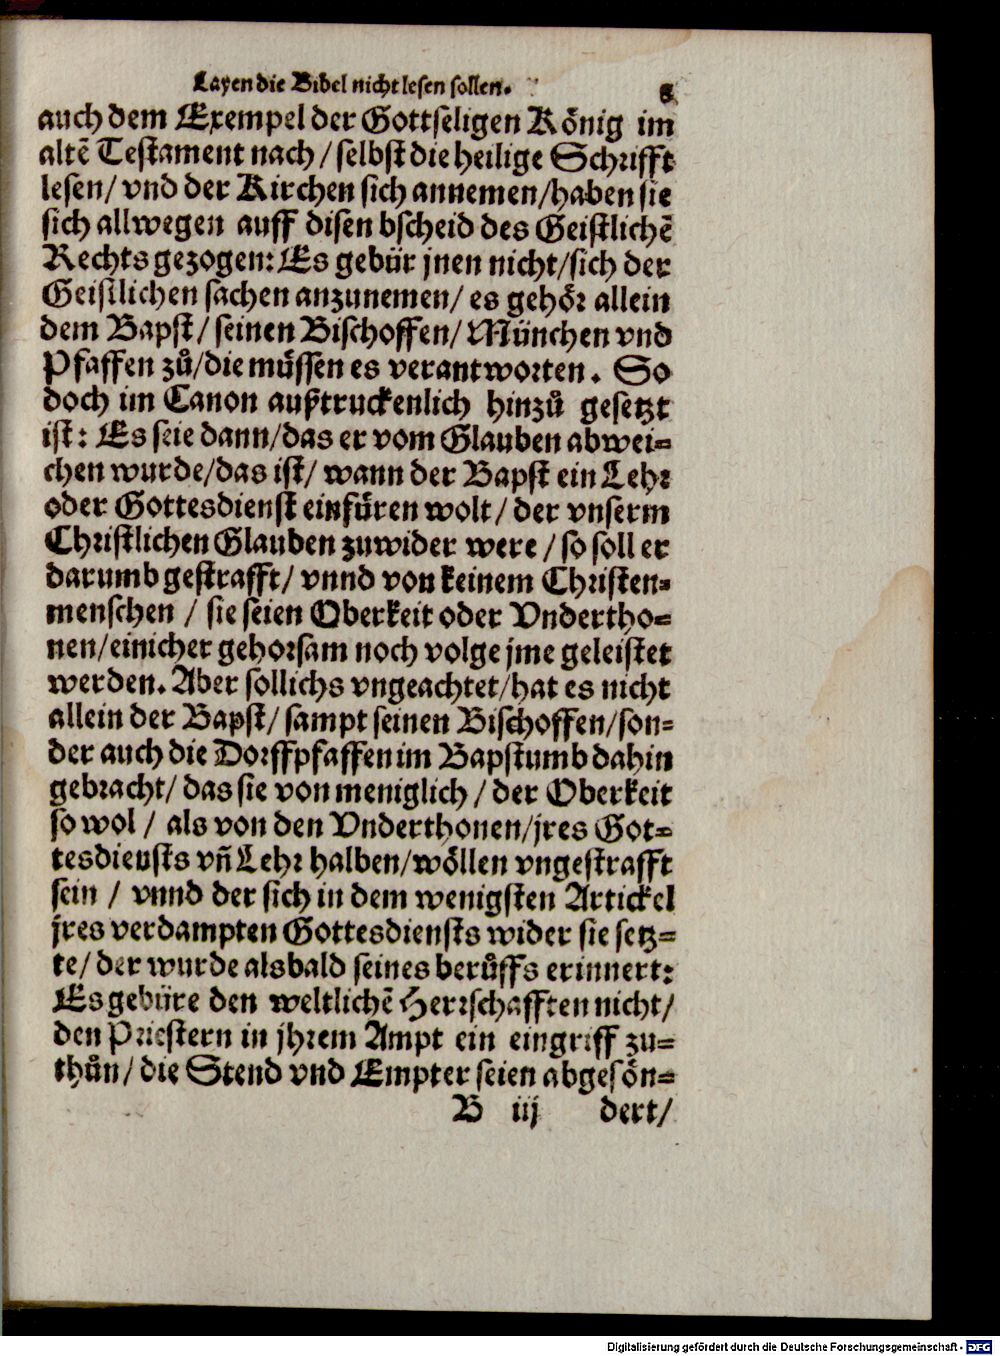 Layen die Bibel nicht lesen sollen. 8
auch dem Exempel der Gottseligen König im
altẽ Testament nach / selbst die heilige Schrifft
lesen / vnd der Kirchen sich annemen / haben sie
sich allwegen auff disen bscheid des Geistlichẽ
Rechts gezogen: Es gebür jnen nicht / sich der
Geistlichen sachen anzunemen / es gehör allein
dem Bapst / seinen Bischoffen / München vnd
Pfaffen zů / die müssen es verantworten. So
doch im Canon außtruckenlich hinzů gesetzt
ist: Es seie dann / das er vom Glauben abwei=
chen wurde / das ist / wann der Bapst ein Lehr
oder Gottesdienst einfüren wolt / der vnserm
Christlichen Glauben zuwider were / so soll er
darumb gestrafft / vnnd von keinem Christen=
menschen / sie seien Oberkeit oder Vndertho=
nen / einicher gehorsam noch volge jme geleistet
werden. Aber sollichs vngeachtet / hat es nicht
allein der Bapst / sampt seinen Bischoffen / son=
der auch die Dorffpfaffen im Bapstumb dahin
gebracht / das sie von meniglich / der Oberkeit
so wol / als von den Vnderthonen / jres Got=
tesdiensts vñ Lehr halben / wöllen vngestrafft
sein / vnnd der sich in dem wenigsten Artickel
jres verdampten Gottesdiensts wider sie setz=
te / der wurde alsbald seines berůffs erinnert:
Es gebüre den weltlichẽ Herrschafften nicht /
den Priestern in jhrem Ampt ein eingriff zu=
thůn / die Stend vnd Empter seien abgesön=
B iij dert /
Digitalisierung gefördert durch die Deutsche Forschungsgemeinschaft - DFG